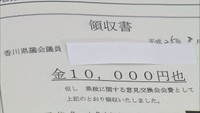 領収書
平成25年8月
香川県議会議員
金10,000円也
但し 県政に関する意見交換会会費として
上記のとおり領収いたしました。